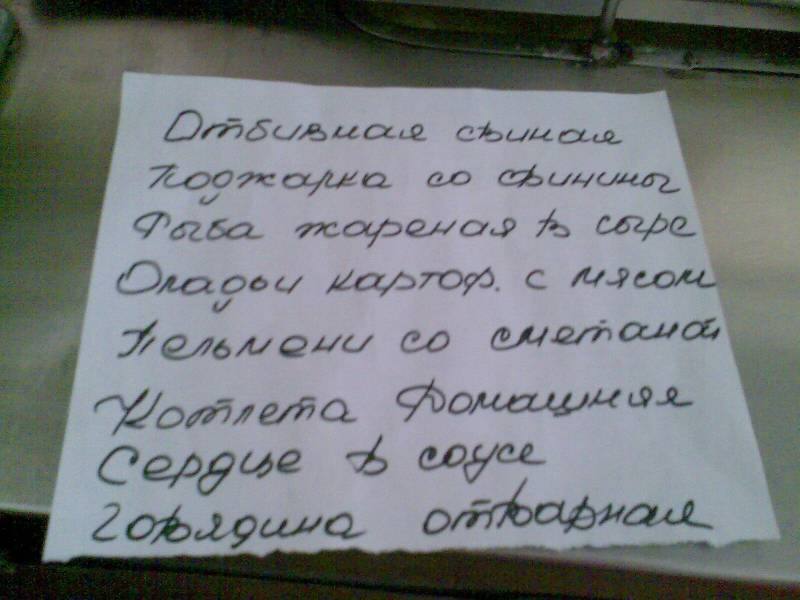 Отбивная свиная
Поджарка со свинины
Рыба жареная в сыре
Оладьи картоф. с мясом
Пельмени со сметаной
Котлета домашняя
Сердце в соусе
Говядина отварная